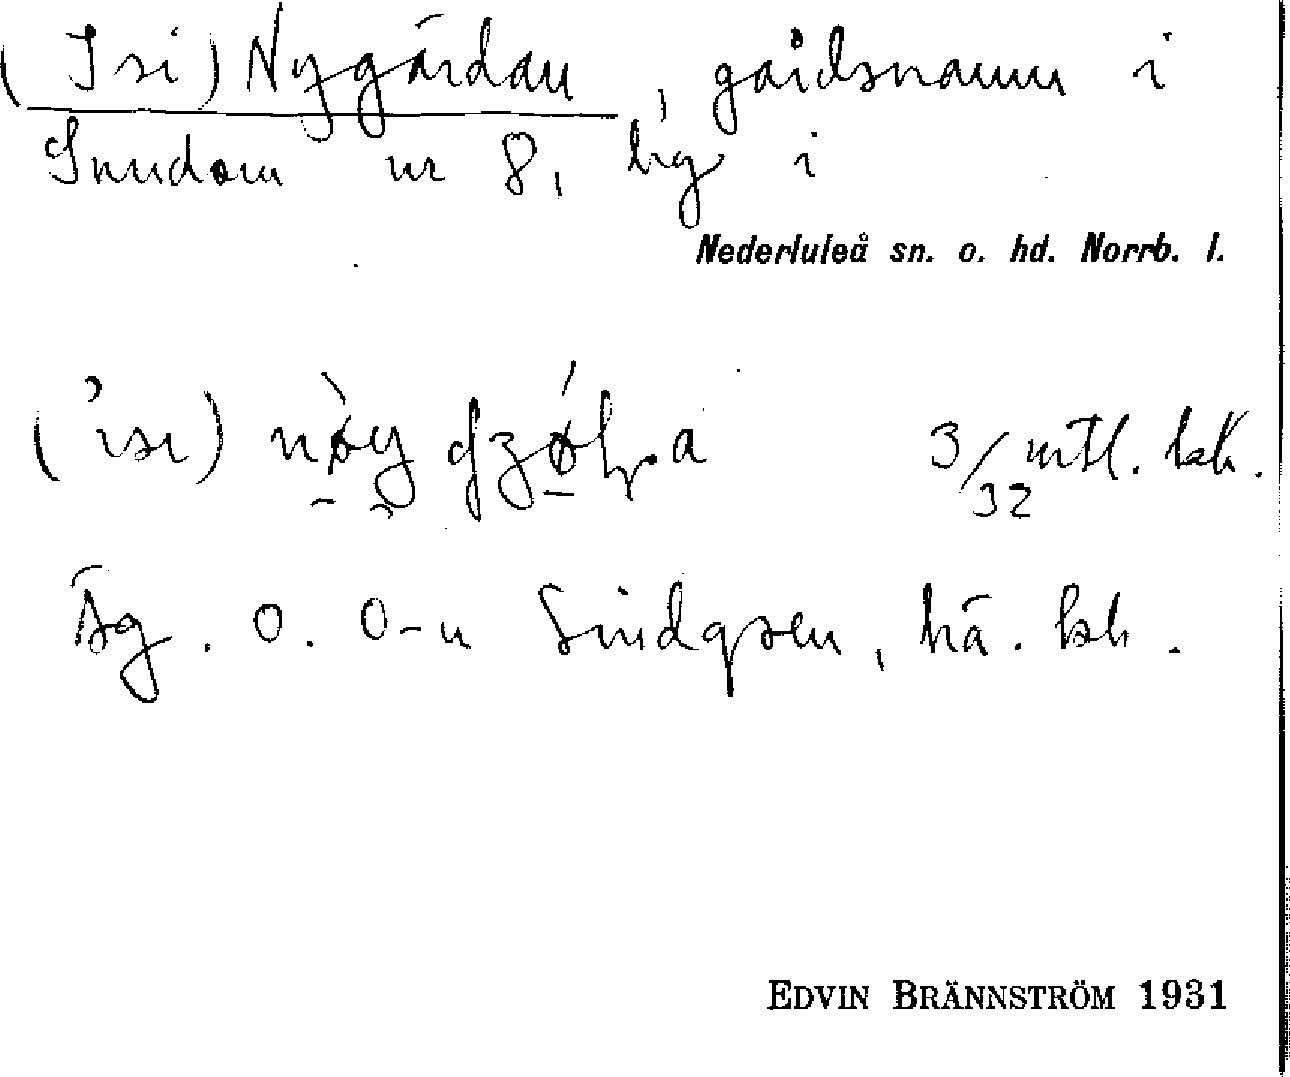 (Isi) Nygårdan, gårdsnamn i
Sundom nr 8, by i
Nederluleå sn. o. hd. Norrb. l.
('isi)
3/32 mtl. bk.
Äg. o. O-n Lindqsen, hä. bk.
EDVIN BRÄNNSTRÖM 1931